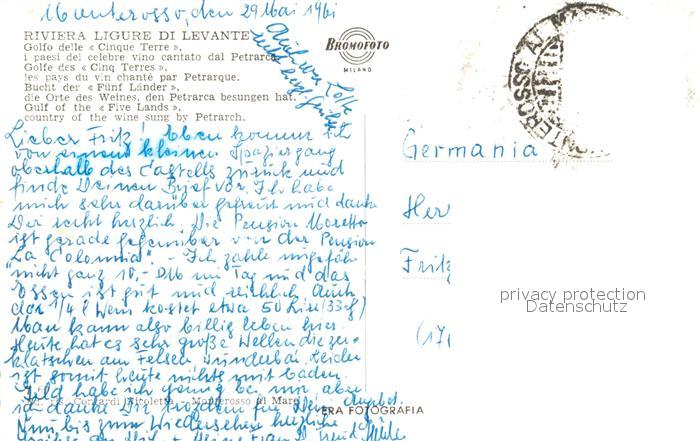 Monterosso, den 29 Mai 1961
RIVIERA LIGURE DI LEVANTE
Golfo delle « Cinque Terre »,
i paesi del celebre vino cantato dal Petrarca
Golfe des « Cinq Terres »,
les pays du vin chanté par Petrarque.
Bucht der « Fünf Länder »,
die Orte des Weines, den Petrarca besungen hat.
Gulf of the « Five Lands »,
country of the wine sung by Petrarch.
BROMOFOTO
MILANO
MONTEROSSO AL MARE
Lieber Fritz! Eben komme ich
von einem kleinen Spaziergang
oberhalb des Castells zurück und
finde Deinen Brief vor. Ich habe
mich sehr darüber gefreut und danke
Dir recht herzlich. Die Pension Moretto
ist gerade gegenüber von der Pension
"La Colonnia". - Ich zahle ungefähr
nicht ganz 10,- DM im Tag und das
Essen ist gut und reichlich. Auch
der 1/4 l Wein kostet etwa 50 Lire (33 )
Man kann also billig leben hier.
Heute hat es sehr große Wellen die zer-
klatschen am Felsen wunderbar. Leider
ist somit heute nichts mit baden.
Geld habe ich genug bei mir aber
ich danke Dir trotzdem für Dein Angebot.
Nun bis zum Wiedersehen herzliche
Germania
Her
Fritz
(17
privacy protection
Datenschutz
Contardi Nicoletta - Monterosso al Mare
VERA FOTOGRAFIA